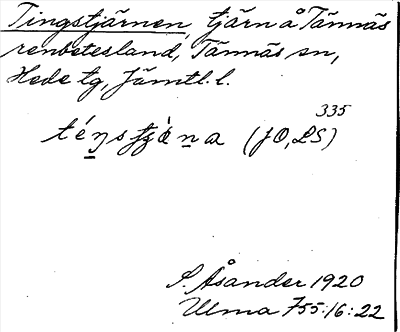 Tingstjärnen, tjärn å Tännäs
renbetesland, Tännäs sn,
Hede tg, Jämtl. l.
335
(JO, LS)
S. Åsander 1920
Ulma 755:16:22